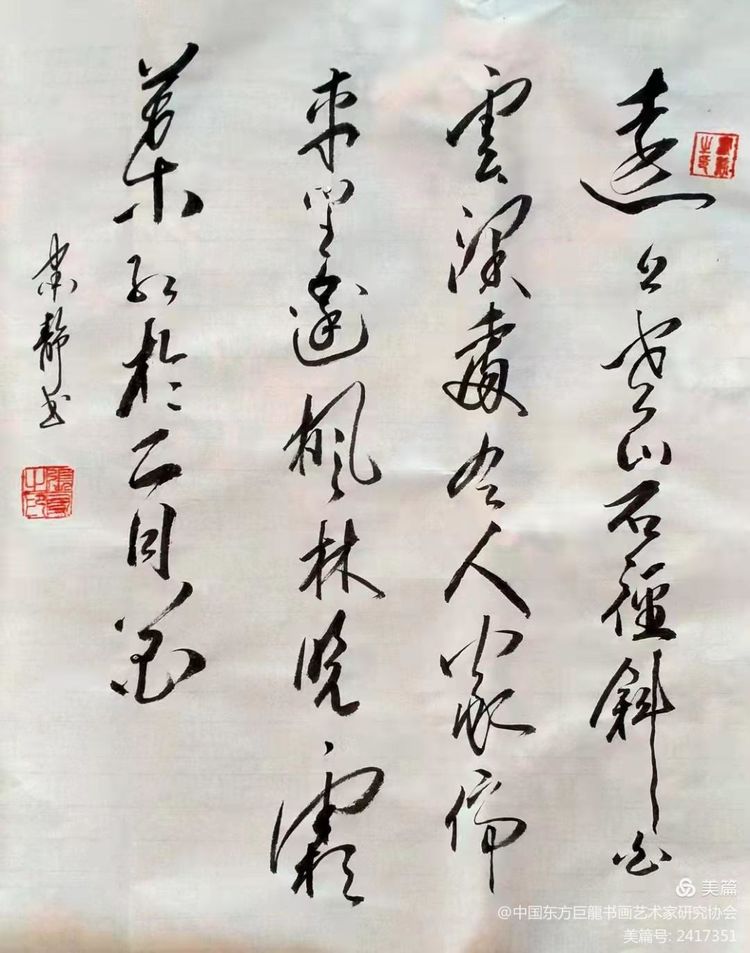 遠上寒山石徑斜白
雲深處有人家停
車坐愛楓林晚霜
葉紅於二月花
靜书
美篇
@中国东方巨龍书画艺术家研究协会
美篇号: 2417351